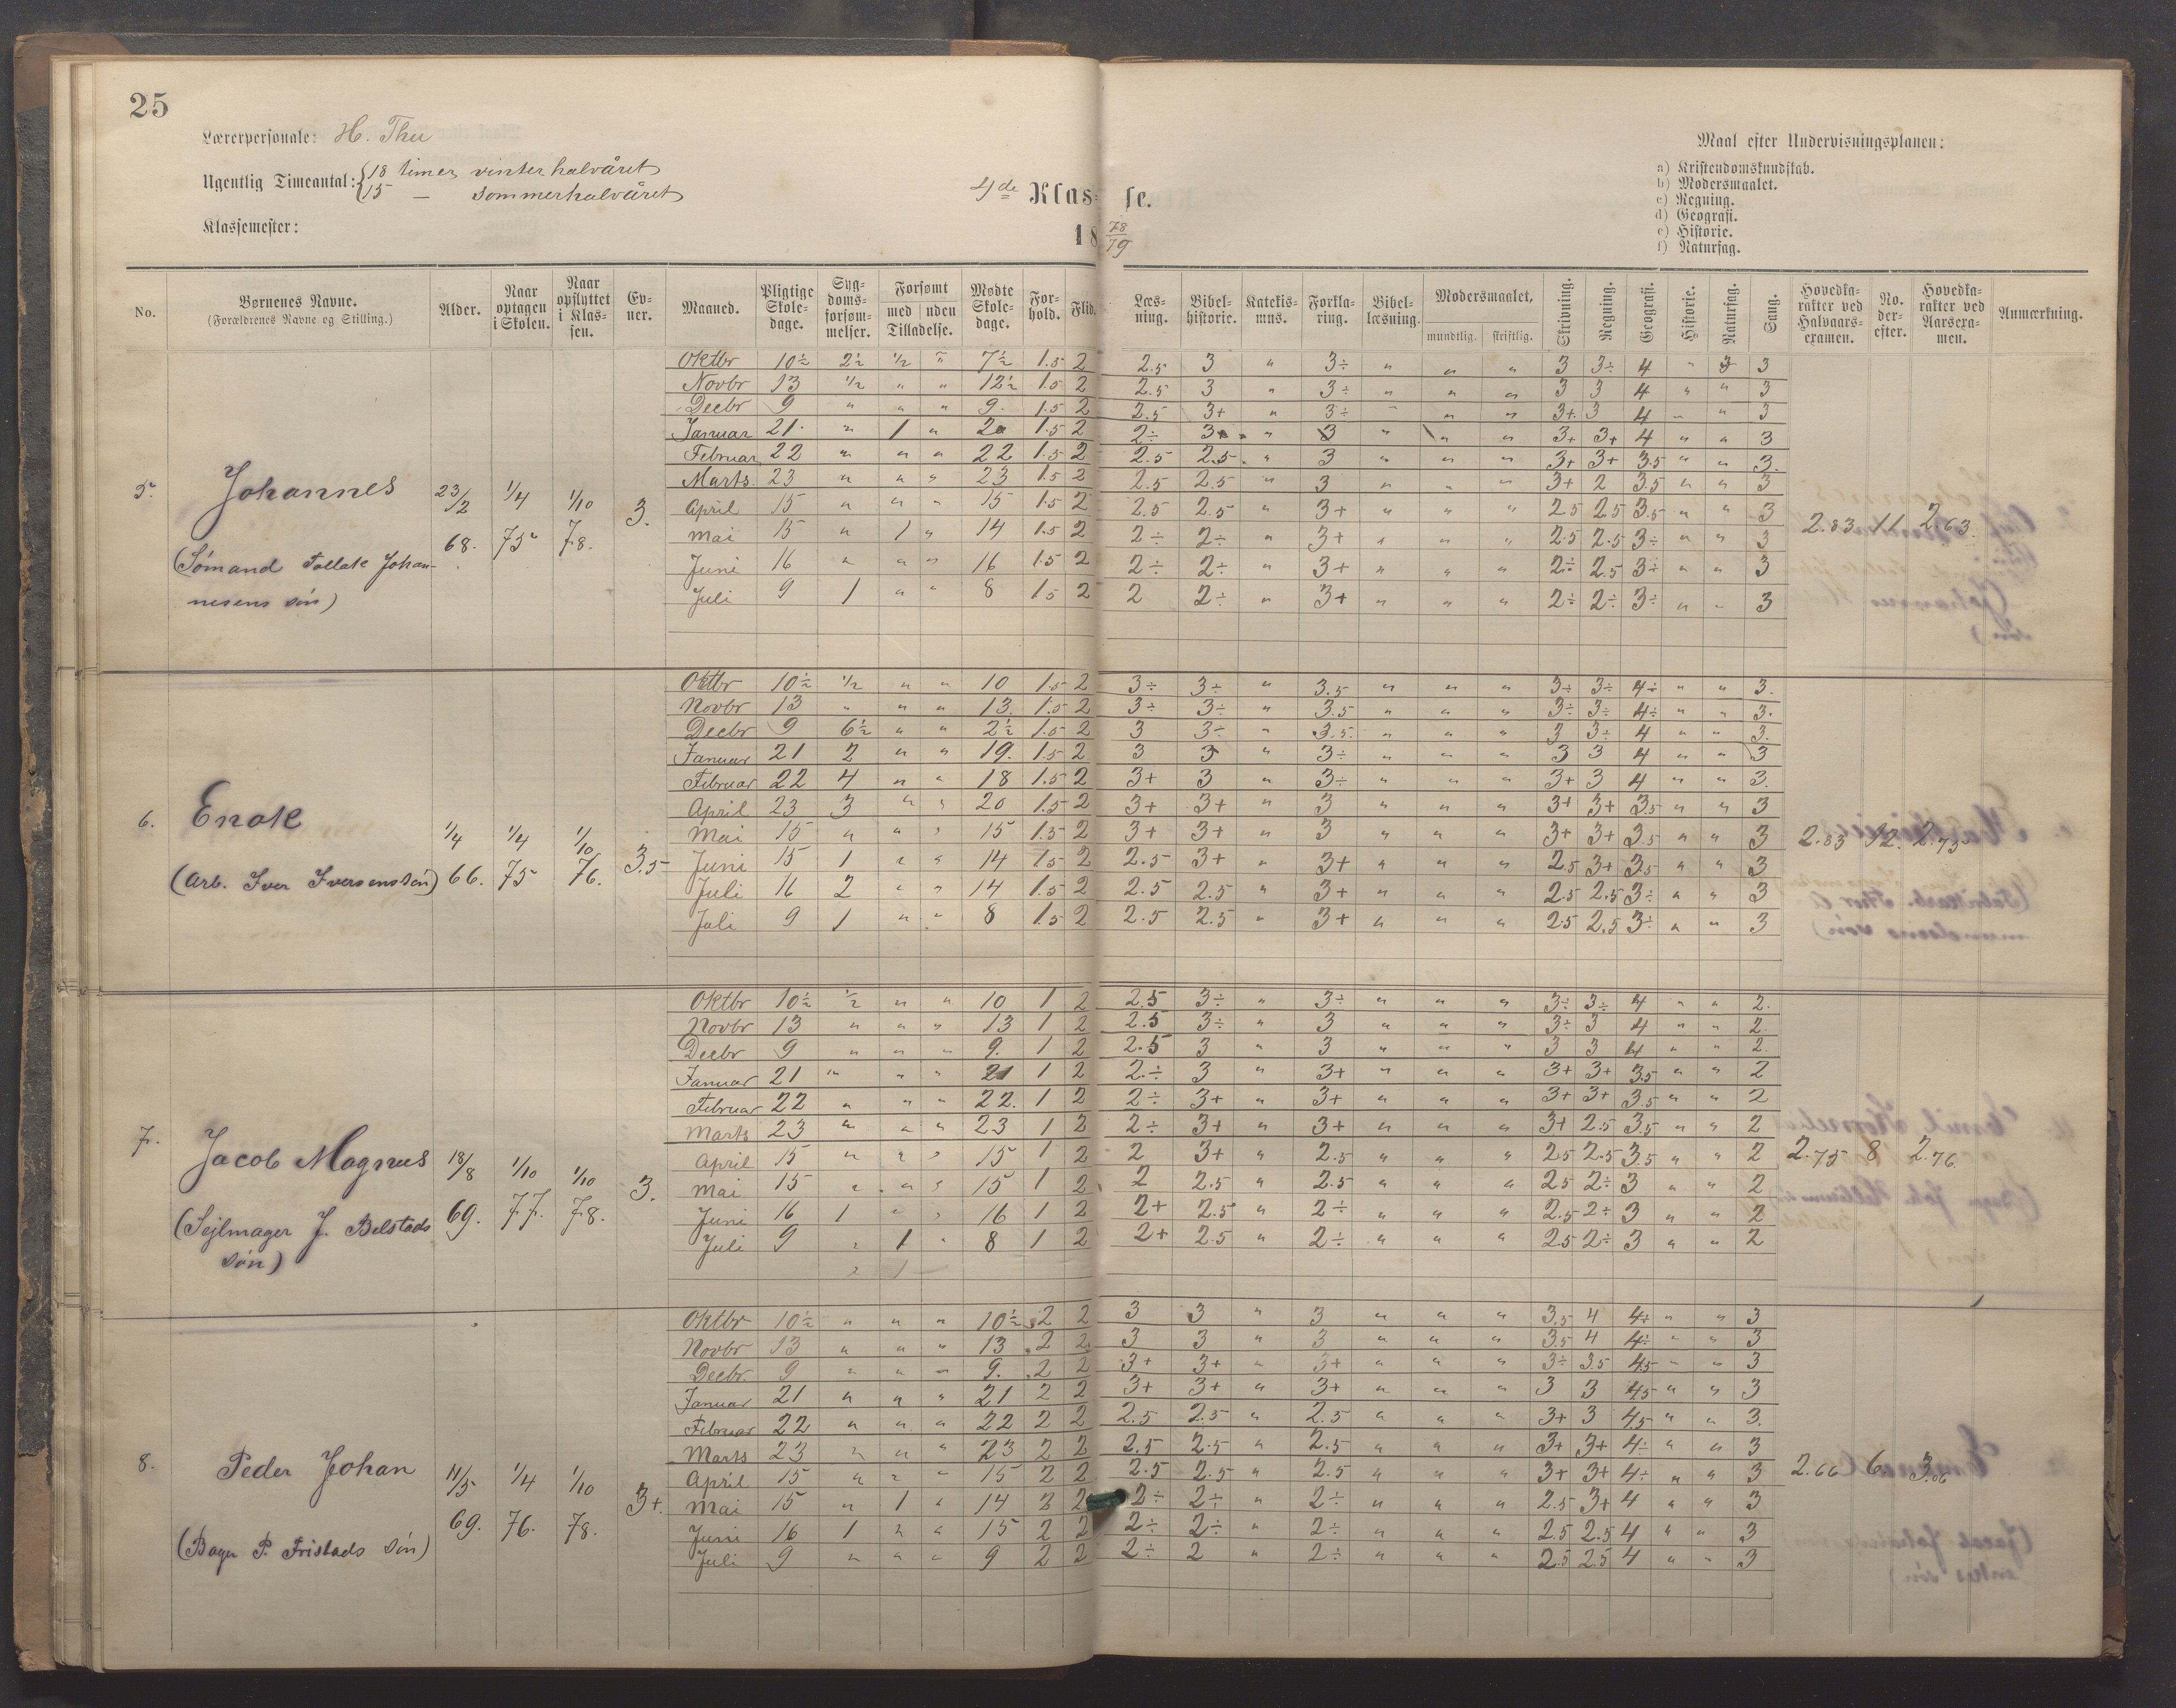 25
Lærerpersonale: H. Thu
Ugentlig Timeantal: {18 timer vinterhalvåret
{15 — sommerhalvåret
Klassemester:
4de Klasse.
1878/79
Maal efter Undervisningsplanen:
a) Kristendomskundskab.
b) Modersmaalet.
c) Regning.
d) Geografi.
e) Historie.
f) Naturfag.
No. | Børnenes Navne. (Forældrenes Navne og Stilling.) | Alder. | Naar optagen i Skolen. | Naar opflyttet i Klassen. | Evner. | Maaned. | Pligtige Skoledage. | Sygdomsforsømmelser. | Forsømt med Tilladelse. | uden Tilladelse. | Mødte Skoledage. | Forhold. | Flid. | Læsning. | Bibelhistorie. | Katekismus. | Forklaring. | Bibellæsning. | Modersmaalet, mundtlig. | skriftlig. | Skrivning. | Regning. | Geografi. | Historie. | Naturfag. | Sang. | Hovedkarakter ved Halvaarsexamen. | No. derefter. | Hovedkarakter ved Aarsexamen. | Anmærkning.
5. Johannes
(Sømand Tollak Johannesens søn)
23/2 68. 1/4 75 1/10 78. 3.
2.83 11 2.63.
Oktbr 10½ 2½ ½ " 7½ 1.5 2 2.5 3 " 3÷ " " " 3 3÷ 4 " 3 3
Novbr 13 ½ " " 12½ 1.5 2 2.5 3 " 3÷ " " " 3 3 4 " " 3
Decbr 9 " " " 9. 1.5 2 2.5 3+ " 3÷ " " " 3+ 3 4 " " 3
Januar 21 " 1 " 20 1.5 2 2÷ 3+ " 3 " " " 3+ 3+ 4 " " 3
Februar 22 " " " 22 1.5 2 2.5 2.5 " 3 " " " 3+ 3+ 3.5 " " 3.
Marts 23 " " " 23 1.5 2 2.5 2.5 " 3 " " " 3+ 2 3.5 " " 3
April 15 " " " 15 1.5 2 2.5 2.5 " 3+ " " " 2.5 2.5 3.5 " " 3
Mai 15 " 1 " 14 1.5 2 2÷ 2÷ " 3+ " " " 2.5 2.5 3÷ " " 3
Juni 16 " " " 16 1.5 2 2÷ 2÷ " 3+ " " " 2÷ 2.5 3÷ " " 3
Juli 9 1 " " 8 1.5 2 2 2÷ " 3+ " " " 2÷ 2÷ 3÷ " " 3
6. Enok
(Arb. Iver Iversens søn)
1/4 66. 1/4 75 1/10 76. 3.5
2.83 12. 2.73
Oktbr 10½ ½ " " 10 1.5 2 3÷ 3÷ " 3.5 " " " 3÷ 3÷ 4÷ " " 3.
Novbr 13 " " " 13 1.5 2 3÷ 3÷ " 3.5 " " " 3÷ 3÷ 4÷ " " 3.
Decbr 9 6½ " " 2½ 1.5 2 3 3÷ " 3.5 " " " 3 3÷ 4 " " 3.
Januar 21 2 " " 19. 1.5 2 3 3 " 3÷ " " " 3 3 4 " " 3
Februar 22 4 " " 18 1.5 2 3+ 3 " 3÷ " " " 3+ 3 4 " " 3.
April 23 3 " " 20 1.5 2 3+ 3+ " 3 " " " 3+ 3+ 3.5 " " 3
Mai 15 " " " 15 1.5 2 3+ 3+ " 3 " " " 3+ 3+ 3.5 " " 3
Juni 15 1 " " 14 1.5 2 2.5 3+ " 3+ " " " 2.5 3+ 3.5 " " 3
Juli 16 2 " " 14 1.5 2 2.5 2.5 " 3+ " " " 2.5 2.5 3÷ " " 3
Juli 9 1 " " 8 1.5 2 2.5 2.5 " 3+ " " " 2.5 2.5 3÷ " " 3
7. Jacob Magnus
(Sejlmager J. Belstads søn)
18/8 69. 1/10 77. 1/10 78. 3.
2.75 8 2.76.
Oktbr 10½ ½ " " 10 1 2 2.5 3÷ " 3÷ " " " 3÷ 3÷ 4 " " 2.
Novbr 13 " " " 13 1 2 2.5 3÷ " 3 " " " 3÷ 3 4 " " 2.
Decbr 9 " " " 9. 1 2 2.5 3 " 3 " " " 3 3 4 " " 2.
Januar 21 " " " 21 1 2 2÷ 3 " 3+ " " " 3+ 3+ 3.5 " " 2
Februar 22 " " " 22. 1 2 2÷ 3+ " 3+ " " " 3+ 3+ 3.5 " " 2
Marts 23 " " " 23 1 2 2÷ 3+ " 3+ " " " 3+ 2.5 3.5 " " 2
April 15 " " " 15 1 2 2 3+ " 2.5 " " " 2.5 2.5 3.5 " " 2
Mai 15 " " " 15 1 2 2 2.5 " 2.5 " " " 2.5 2÷ 3 " " 2
Juni 16 1 " " 16 1 2 2+ 2.5 " 2÷ " " " 2.5 2÷ 3 " " 2
Juli 9 " 1 " 8 1 2 2+ 2.5 " 2÷ " " " 2.5 2÷ 3 " " 2
8. Peder Johan
(Bager P. Fristads søn)
11/5 69. 1/4 76. 1/10 78. 3+.
2.66 6 3.06
Oktbr 10½ " " " 10½ 2 2 3 3 " 3 " " " 3.5 4 4÷ " " 3
Novbr 13 " " " 13 2 2 3 3 " 3 " " " 3.5 4 4÷ " " 3
Decbr. 9 " " " 9. 2 2 3+ 3+ " 3+ " " " 3÷ 3.5 4.5 " " 3
Januar 21 " " " 21 2 2 3+ 3+ " 3+ " " " 3 3 4.5 " " 3
Februar 22 " " " 22 2 2 2.5 2.5 " 2.5 " " " 3+ 3 4.5 " " 3.
Marts 23 " " " 23 2 2 2.5 2.5 " 2.5 " " " 3+ 3+ 4÷ " " 3
April 15 " " " 15 2 2 2.5 2.5 " 2.5 " " " 3+ 3+ 4÷ " " 3
Mai 15 " 1 " 14 2 2 2÷ 2÷ " 2÷ " " " 2.5 3+ 4 " " 3
Juni 16 1 " " 15 2 2 2÷ 2÷ " 2÷ " " " 2.5 2.5 4 " " 3
Juli 9 " " " 9 2 2 2÷ 2 " 2÷ " " " 2.5 2.5 4 " " 3